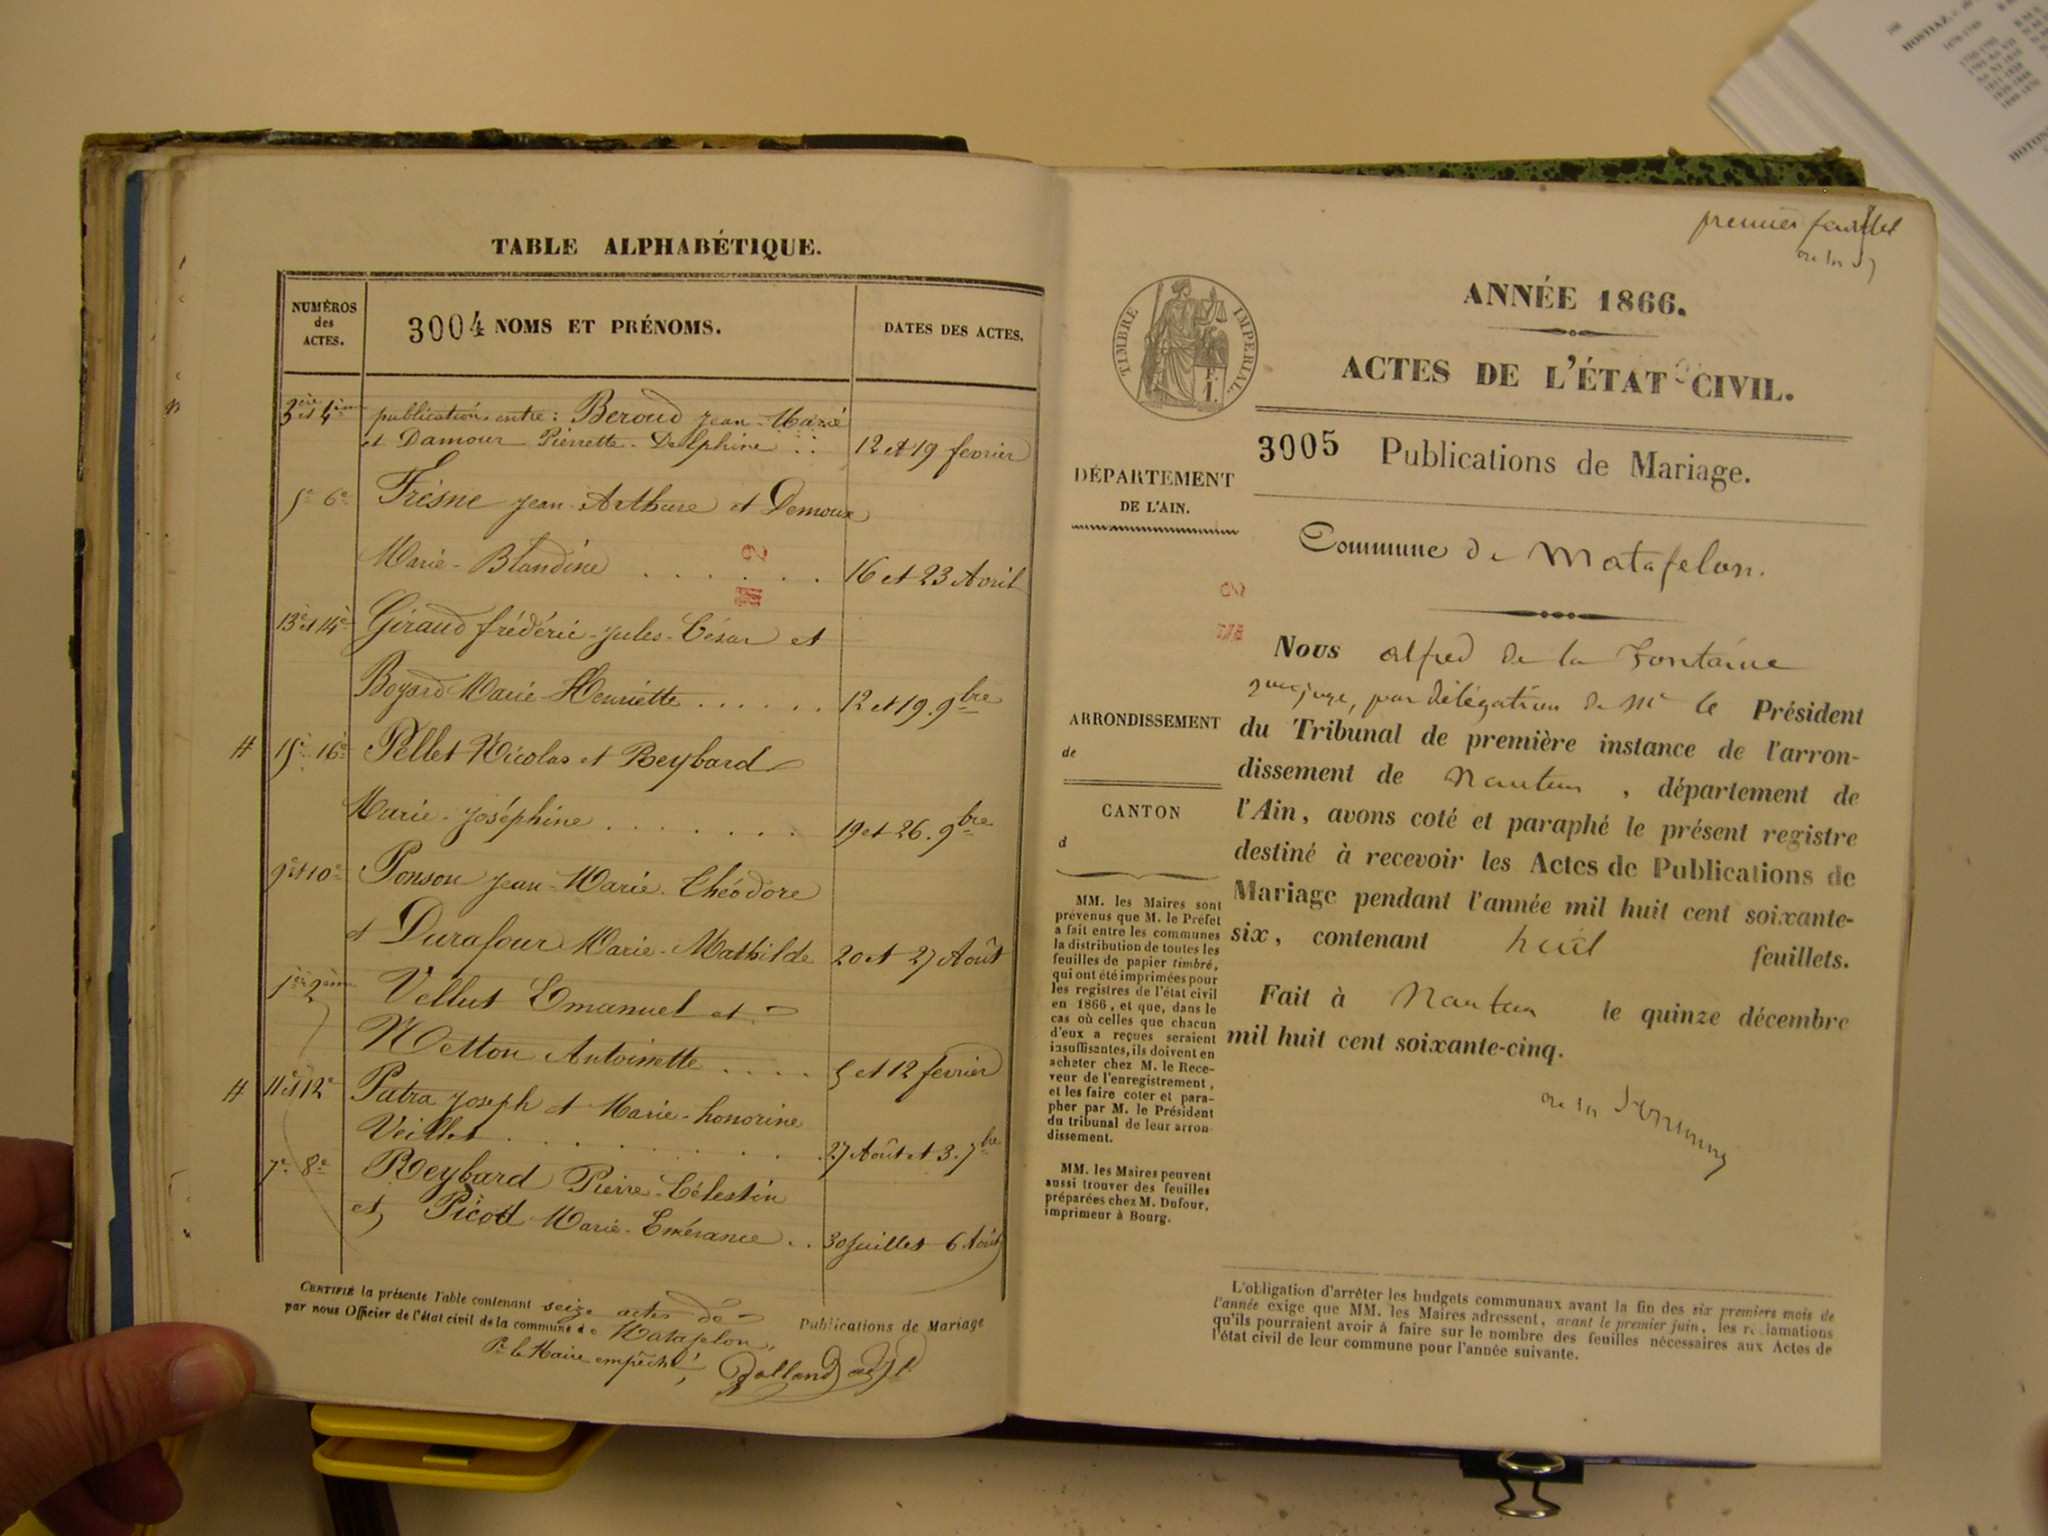 TABLE ALPHABÉTIQUE.
NUMÉROS
des
ACTES.
3004 NOMS ET PRÉNOMS.
DATES DES ACTES.
3ème et 4ème publications entre : Beroud jean-Marie
et Damour Pierrette-Delphine .. 12 et 19 fevrier
5e 6e Frésne jean-Arthure et Demoux
Marie-Blandine . . . . . . 16 et 23 Avril
13e et 14e Giraud frédéric-jules-César et
Boyard Marie-Henriette . . . . . . 12 et 19. 9bre
# 15e 16e Pellet Nicolas et Reybard
Marie-joséphine . . . . . . . 19 et 26. 9bre
9e et 10e Ponson jean-Marie-théodore
et Durafour Marie-Mathilde 20 et 27 Août
1ère 2ème Vellut Emanuel et
Netton Antoinette . . . . . 5 et 12 fevrier
# 11e et 12e Patra joseph et Marie-honorine
Veillet . . . . . . . . 27 Août et 3. 7bre
7e 8e Reybard Pierre-Célestin
et Picod Marie-Emérance . . 30 Juillet 6 Août
CERTIFIÉ la présente Table contenant seize actes de Publications de Mariage
par nous Officier de l'état civil de la commune de Matafelon,
Pr le Maire empêché,
premier feuillet
TIMBRE IMPÉRIAL
ANNÉE 1866.
ACTES DE L'ÉTAT CIVIL.
3005 Publications de Mariage.
DÉPARTEMENT
DE L'AIN.
Commune de Matafelon.
ARRONDISSEMENT
de
CANTON
d
MM. les Maires sont
prévenus que M. le Préfet
a fait entre les communes
la distribution de toutes les
feuilles de papier timbré,
qui ont été imprimées pour
les registres de l'état civil
en 1866, et que, dans le
cas où celles que chacun
d'eux a reçues seraient
insuffisantes, ils doivent en
acheter chez M. le Rece-
veur de l'enregistrement,
et les faire coter et para-
pher par M. le Président
du tribunal de leur arron-
dissement.
MM. les Maires peuvent
aussi trouver des feuilles
préparées chez M. Dufour,
imprimeur à Bourg.
Nous alfred de la Fontaine
juge, par délégation de Mr le Président
du Tribunal de première instance de l'arron-
dissement de Nantua, département de
l'Ain, avons coté et paraphé le présent registre
destiné à recevoir les Actes de Publications de
Mariage pendant l'année mil huit cent soixante-
six, contenant huit feuillets.
Fait à Nantua le quinze décembre
mil huit cent soixante-cinq.
L'obligation d'arrêter les budgets communaux avant la fin des six premiers mois de
l'année exige que MM. les Maires adressent, avant le premier juin, les réclamations
qu'ils pourraient avoir à faire sur le nombre des feuilles nécessaires aux Actes de
l'état civil de leur commune pour l'année suivante.